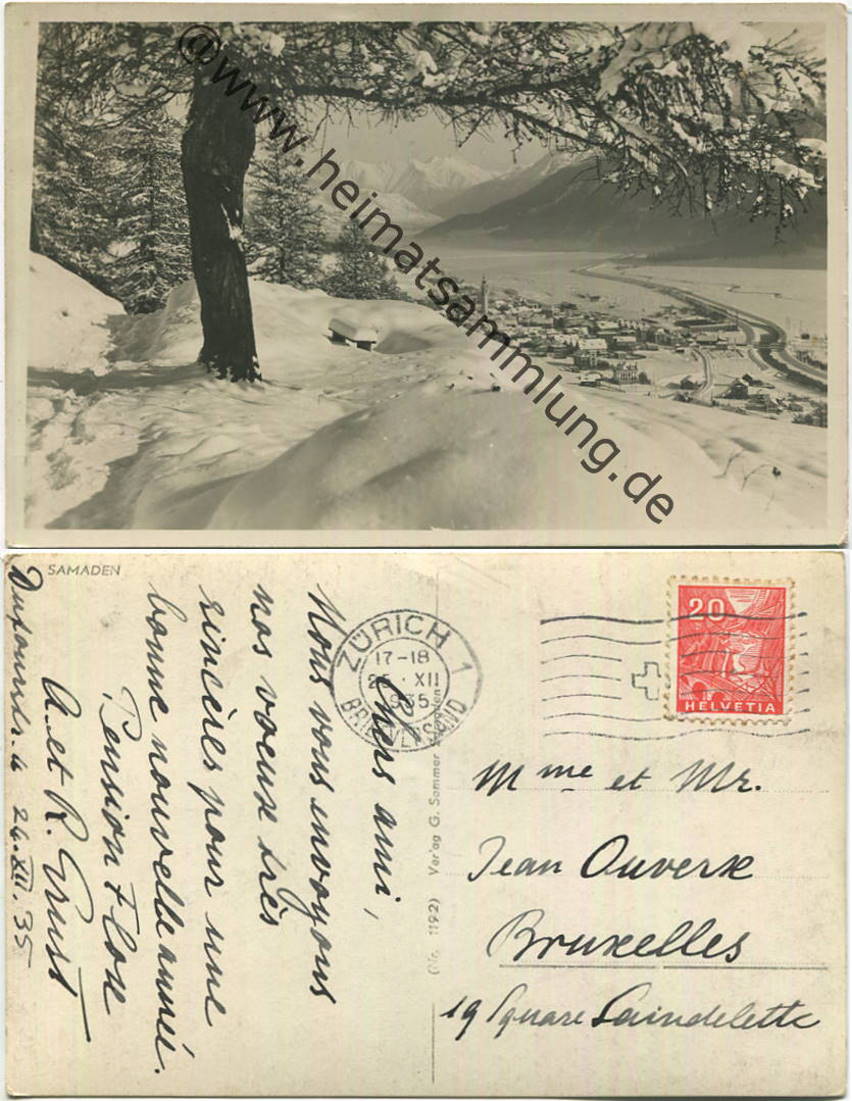 @www.heimatsammlung.de
SAMADEN
Chers ami,
Nous vous envoyons
nos voeux très
sincères pour une
bonne nouvelle année.
Pension Flox
A. et R. Ernst
26.XII.35
(Nr. 1192) Verlag G. Sommer
ZÜRICH 1
17-18
XII
1935
BRIEFVERSAND
20
HELVETIA
Mme et Mr.
Jean Ouverx
Bruxelles
19 Square Saindelette